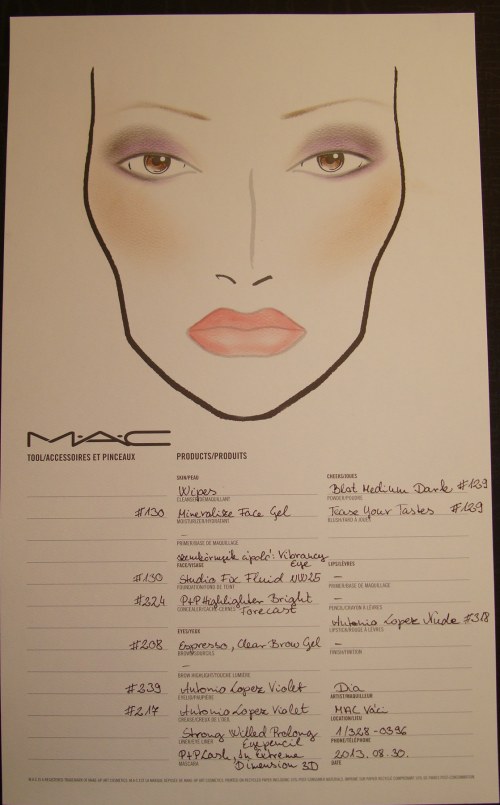 M·A·C
TOOL/ACCESSOIRES ET PINCEAUX
PRODUCTS/PRODUITS
SKIN/PEAU
Wipes
CLEANSER/DÉMAQUILLANT
#130 Mineralize Face Gel
MOISTURIZER/HYDRATANT
–
PRIMER/BASE DE MAQUILLAGE
szemkörnyék ápoló: Vibrancy Eye
FACE/VISAGE
#130 Studio Fix Fluid NW25
FOUNDATION/FOND DE TEINT
#224 P+P Highlighter Bright Forecast
CONCEALER/CACHE-CERNES
EYE/YEUX
#208 Espresso, Clear Brow Gel
BROW/SOURCILS
–
BROW HIGHLIGHT/TOUCHE LUMIÈRE
#239 Antonio Lopez Violet
EYELID/PAUPIÈRE
#217 Antonio Lopez Violet
CREASE/CREUX DE L'OEIL
Strong Willed Prolong Eyepencil
LINER/EYE LINER
P+P Lash, In Extreme Dimension 3D
MASCARA
CHEEKS/JOUES
Blot Medium Dark #129
POWDER/POUDRE
Tease Your Tastes #129
BLUSH/FARD À JOUES
LIPS/LÈVRES
–
PRIMER/BASE DE MAQUILLAGE
–
PENCIL/CRAYON À LÈVRES
Antonio Lopez Nude #318
LIPSTICK/ROUGE À LÈVRES
–
FINISH/FINITION
Dia
ARTIST/MAQUILLEUR
MAC Váci
LOCATION/LIEU
1/328-0396
PHONE/TÉLÉPHONE
2013. 08. 30.
DATE